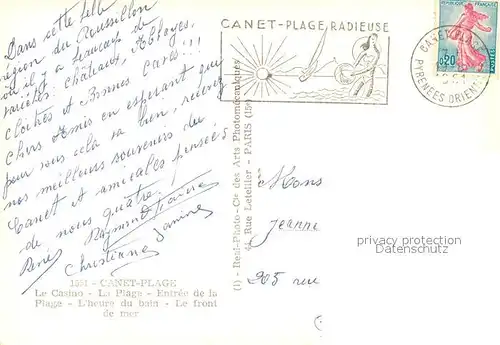 Dans cette belle
région du Roussillon
où il y a beaucoup de
variétés: Châteaux, Abbayes,
cloîtres et Bonnes Caves !!!
Chers Amis en espérant que
pour vous cela va bien, recevez
nos meilleurs souvenirs du
Canet et amicales pensées
de nous quatre.
René Raymond
Christiane Janine
1084 - CANET-PLAGE
Le Casino - La Plage - Entrée de la
Plage - L'heure du bain - Le front
de mer
CANET-PLAGE RADIEUSE
RÉPUBLIQUE FRANÇAISE
0,20
POSTES
CANET PLAGE
PYRENEES ORIENT
(I) - Real-Photo - Cie des Arts Photomécaniques
44, Rue Letellier - PARIS (15e)
Mons
Jeanne
205 rue
philatelic protection
©DatacardService